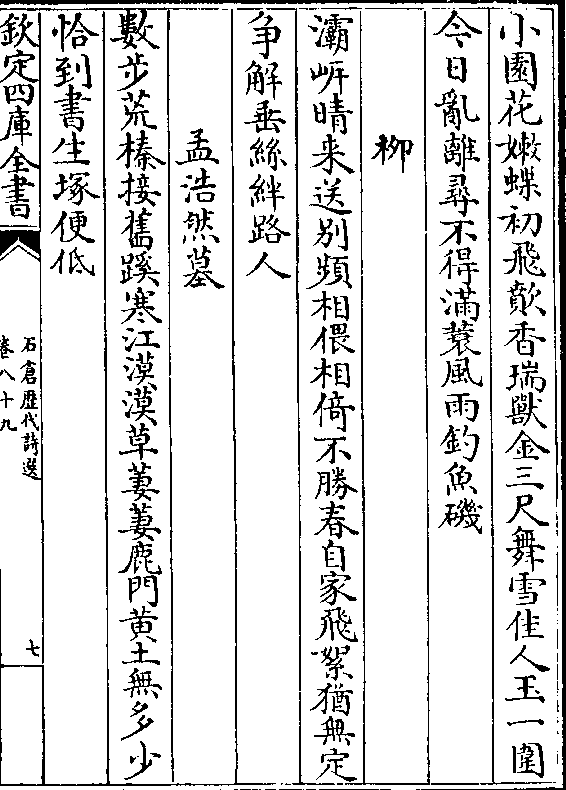 小園花嫩蝶初飛歕香瑞獸金三尺舞雪佳人玉一圍
今日亂離尋不得滿蓑風雨釣魚磯
柳
灞岍晴来送别頻相偎相倚不勝春自家飛絮猶無定
争解垂絲絆路人
孟浩然墓
數步荒榛接舊蹊寒江漠漠草萋萋鹿門黄土無多少
恰到書生塚便低
欽定四庫全書
石倉歴代詩選
卷八十九
七